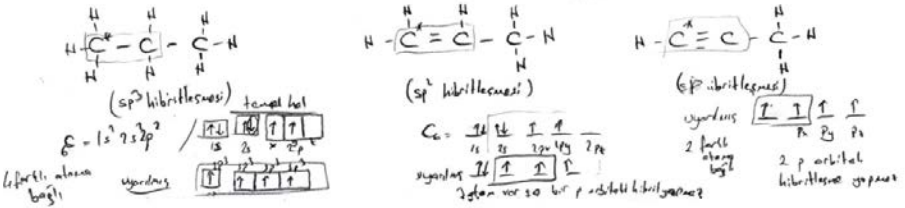 H H H
H - C* - C - C - H
H H H
(sp³ hibritleşmesi)
temel hal
₆C = 1s² 2s² 2p²
1s 2s
4 farklı atoma
bağlı
uyarılmış
H H H
H - C* = C - C - H
H
(sp² hibritleşmesi)
C₆ = 1s 2s 2px 2py 2pz
uyarılmış
3 atom var so bir p orbitali hibrit yapmaz
H
H - C* ≡ C - C - H
H
(sp hibritleşmesi)
uyarılmış
px py pz
2 farklı
atoma
bağlı
2 p orbitali
hibritleşme yapmaz